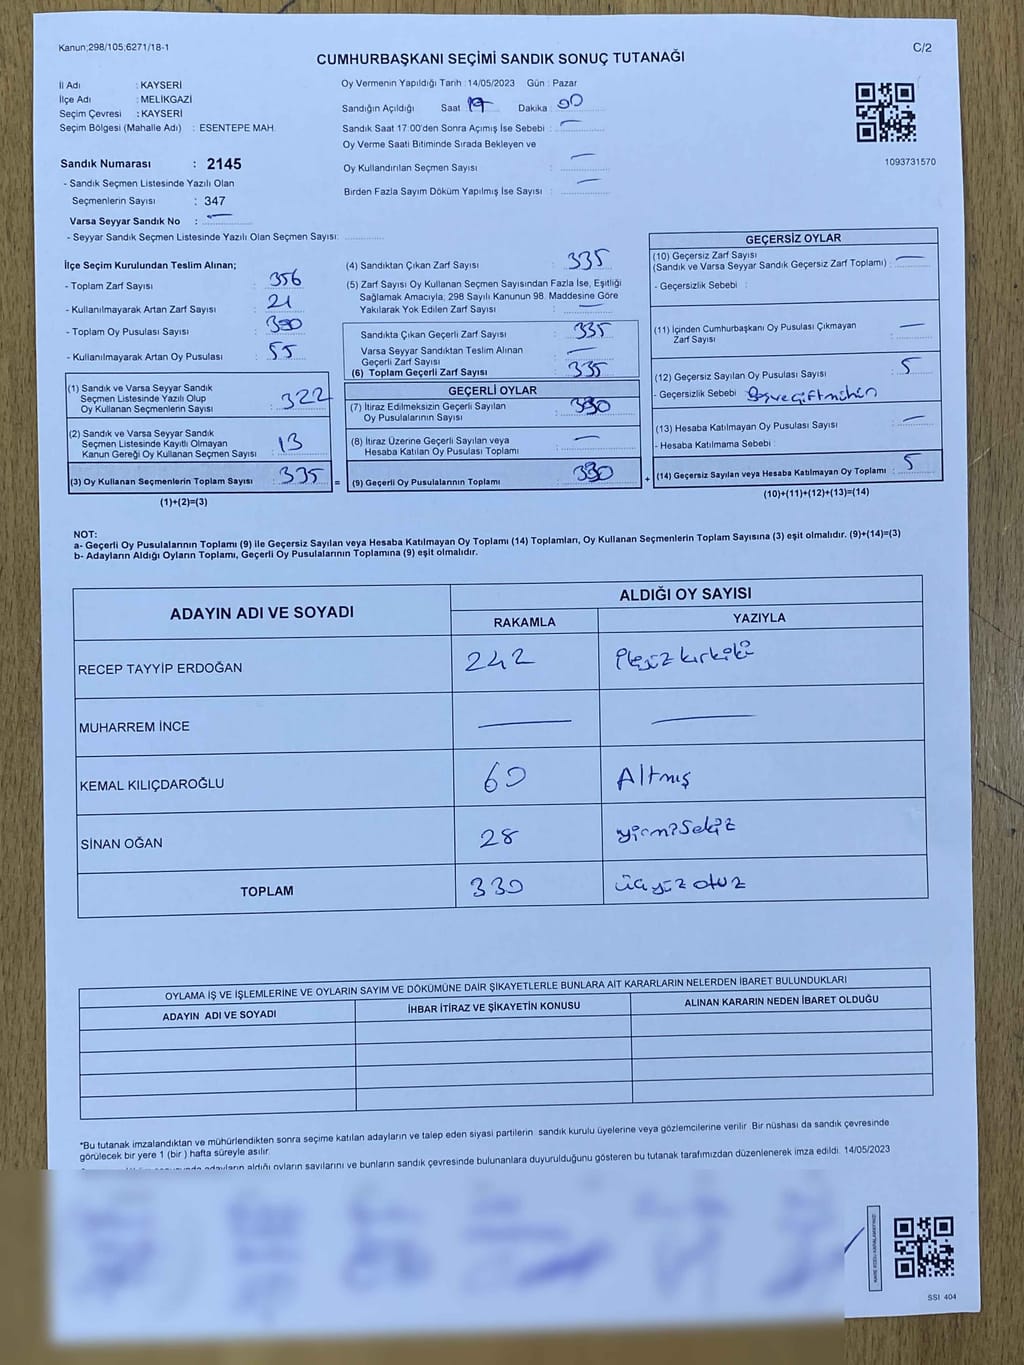 Kanun;298/105;6271/18-1
C/2
CUMHURBAŞKANI SEÇİMİ SANDIK SONUÇ TUTANAĞI
İl Adı : KAYSERİ
İlçe Adı : MELİKGAZİ
Seçim Çevresi : KAYSERİ
Seçim Bölgesi (Mahalle Adı) : ESENTEPE MAH.
Sandık Numarası : 2145
- Sandık Seçmen Listesinde Yazılı Olan
Seçmenlerin Sayısı : 347
Varsa Seyyar Sandık No : —
- Seyyar Sandık Seçmen Listesinde Yazılı Olan Seçmen Sayısı: ............
Oy Vermenin Yapıldığı Tarih : 14/05/2023 Gün : Pazar
Sandığın Açıldığı Saat Dakika : 00
Sandık Saat 17:00'den Sonra Açımış İse Sebebi : —
Oy Verme Saati Bitiminde Sırada Bekleyen ve
Oy Kullandırılan Seçmen Sayısı : —
Birden Fazla Sayım Döküm Yapılmış İse Sayısı : —
1093731570
İlçe Seçim Kurulundan Teslim Alınan;
- Toplam Zarf Sayısı : 356
- Kullanılmayarak Artan Zarf Sayısı : 21
- Toplam Oy Pusulası Sayısı :
- Kullanılmayarak Artan Oy Pusulası : 55
(1) Sandık ve Varsa Seyyar Sandık
Seçmen Listesinde Yazılı Olup
Oy Kullanan Seçmenlerin Sayısı : 322
(2) Sandık ve Varsa Seyyar Sandık
Seçmen Listesinde Kayıtlı Olmayan
Kanun Gereği Oy Kullanan Seçmen Sayısı : 13
(3) Oy Kullanan Seçmenlerin Toplam Sayısı : 335 =
(1)+(2)=(3)
(4) Sandıktan Çıkan Zarf Sayısı : 335
(5) Zarf Sayısı Oy Kullanan Seçmen Sayısından Fazla İse, Eşitliği
Sağlamak Amacıyla; 298 Sayılı Kanunun 98. Maddesine Göre
Yakılarak Yok Edilen Zarf Sayısı : —
Sandıkta Çıkan Geçerli Zarf Sayısı : 335
Varsa Seyyar Sandıktan Teslim Alınan
Geçerli Zarf Sayısı : —
(6) Toplam Geçerli Zarf Sayısı : 335
GEÇERLİ OYLAR
(7) İtiraz Edilmeksizin Geçerli Sayılan
Oy Pusulalarının Sayısı : 330
(8) İtiraz Üzerine Geçerli Sayılan veya
Hesaba Katılan Oy Pusulası Toplamı : —
(9) Geçerli Oy Pusulalarının Toplamı : 330 +
GEÇERSİZ OYLAR
(10) Geçersiz Zarf Sayısı
(Sandık ve Varsa Seyyar Sandık Geçersiz Zarf Toplamı) : —
- Geçersizlik Sebebi :
(11) İçinden Cumhurbaşkanı Oy Pusulası Çıkmayan
Zarf Sayısı : —
(12) Geçersiz Sayılan Oy Pusulası Sayısı : 5
- Geçersizlik Sebebi : Boş ve çift mühür
(13) Hesaba Katılmayan Oy Pusulası Sayısı : —
- Hesaba Katılmama Sebebi :
(14) Geçersiz Sayılan veya Hesaba Katılmayan Oy Toplamı : 5
(10)+(11)+(12)+(13)=(14)
NOT:
a- Geçerli Oy Pusulalarının Toplamı (9) ile Geçersiz Sayılan veya Hesaba Katılmayan Oy Toplamı (14) Toplamları, Oy Kullanan Seçmenlerin Toplam Sayısına (3) eşit olmalıdır. (9)+(14)=(3)
b- Adayların Aldığı Oyların Toplamı, Geçerli Oy Pusulalarının Toplamına (9) eşit olmalıdır.
ADAYIN ADI VE SOYADI
ALDIĞI OY SAYISI
RAKAMLA YAZIYLA
RECEP TAYYİP ERDOĞAN 242 İkiyüz kırkiki
MUHARREM İNCE — —
KEMAL KILIÇDAROĞLU 60 Altmış
SİNAN OĞAN 28 yirmi Sekiz
TOPLAM 330 üçyüz otuz
OYLAMA İŞ VE İŞLEMLERİNE VE OYLARIN SAYIM VE DÖKÜMÜNE DAİR ŞİKAYETLERLE BUNLARA AİT KARARLARIN NELERDEN İBARET BULUNDUKLARI
ADAYIN ADI VE SOYADI İHBAR İTİRAZ VE ŞİKAYETİN KONUSU ALINAN KARARIN NEDEN İBARET OLDUĞU
*Bu tutanak imzalandıktan ve mühürlendikten sonra seçime katılan adayların ve talep eden siyasi partilerin sandık kurulu üyelerine veya gözlemcilerine verilir. Bir nüshası da sandık çevresinde
görülecek bir yere 1 (bir ) hafta süreyle asılır.
adayların aldığı oyların sayılarını ve bunların sandık çevresinde bulunanlara duyurulduğunu gösteren bu tutanak tarafımızdan düzenlenerek imza edildi. 14/05/2023
SSI 404